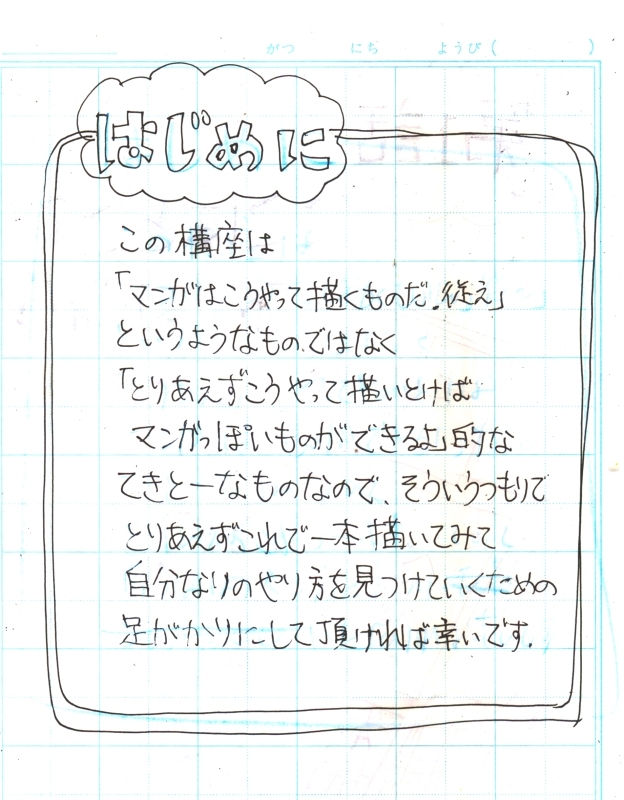 がつ にち ようび( )
はじめに
この構座は
「マンガはこうやって描くものだ。従え」
というようなものではなく
「とりあえずこうやって描いとけば
マンガっぽいものができるよ」的な
てきとーなものなので、そういうつもりで
とりあえずこれで一本描いてみて
自分なりのやり方を見つけていくための
足がかりにして頂ければ幸いです.